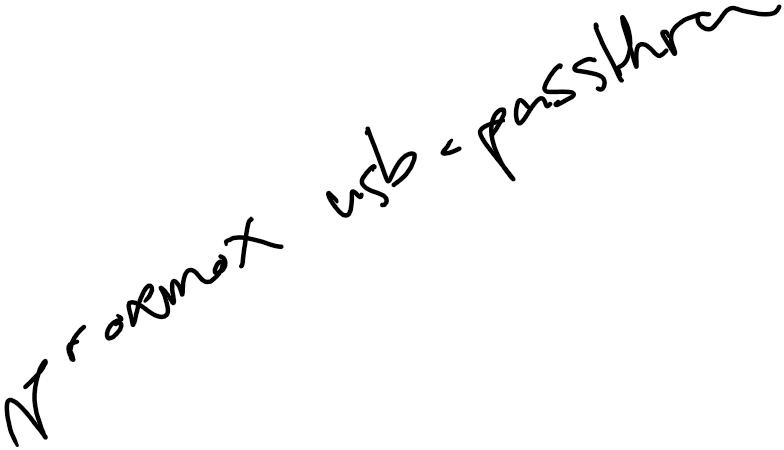 proxmox usb-passthru